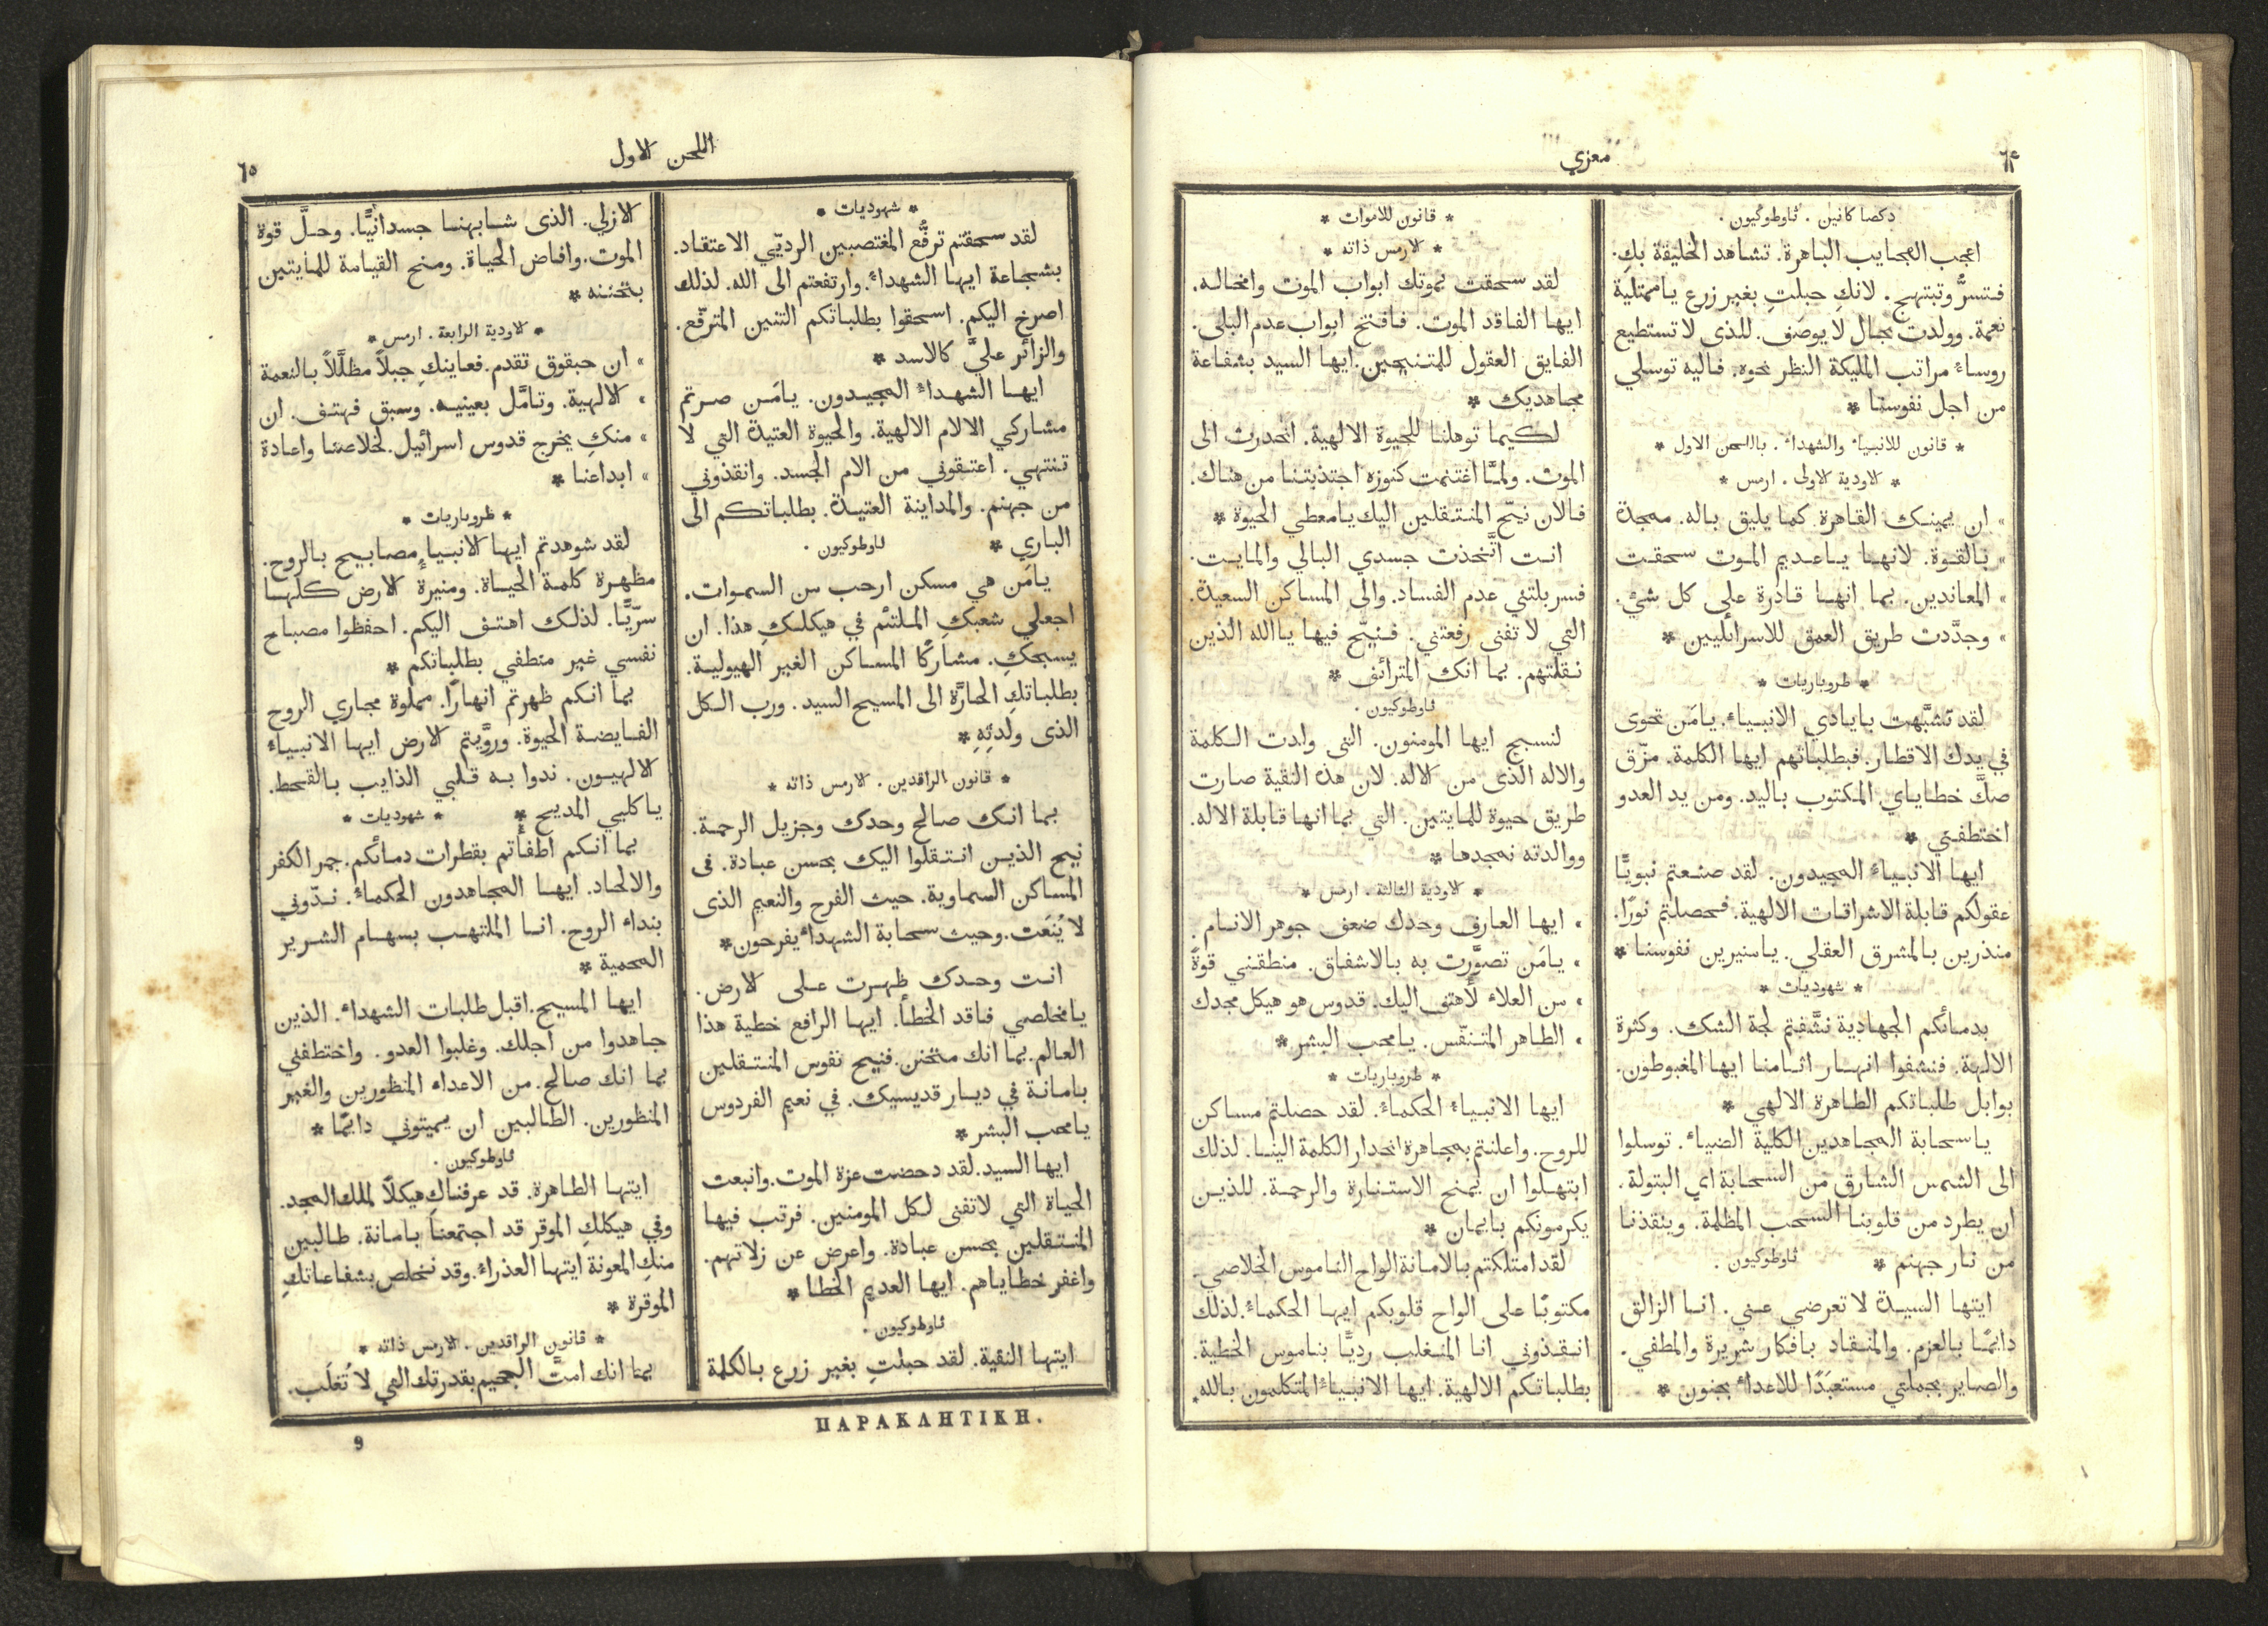 ٦٤
معزي
دكصا كانين . ثاوطوكيون .
اعجب العجايب الباهرة. تشاهد الخليقة بكِ.
فتسرُّ وتبتهج. لانكِ حبلتِ بغير زرع ياممتلية
نعمة. وولدت بحال لا يوصَف. للذى لا تستطيع
روساءُ مراتب المليكة النظر نحوه. فاليه توسلي
من اجل نفوسنا *
* قانون للانبياءُ والشهداءُ . باللحن الاول *
* الاودية الاولى . ارمس *
» ان يمينك القاهرة كما يليق باله. ممجدة
» بالقوة. لانها ياعديم الموت سحقت
» المعاندين. بما انها قادرة على كل شيٍ.
» وجدَّدت طريق العمق للاسرائليين *
* طروباريات *
لقد تشبَّهت بايادي الانبياءُ. يامَن تحوى
في يدك الاقطار. فبطلباتهم ايها الكلمة. مزّق
صكَّ خطاياي المكتوب باليد. ومن يد العدو
اختطفني *
ايها الانبياءُ المجيدون. لقد صنعتم نبويًّا
عقولكم قابلة الاشراقات الالهية. فحصلتم نورًا.
منذرين بالمشرق العقلي. يامنيرين نفوسنا *
* شهوديات *
بدمائكم الجهادية نشَّفتم لجة الشك. وكثرة
الالهة. فنشفوا انهار اثامنا ايها المغبوطون.
بوابل طلباتكم الطاهرة الالهي *
ياسحابة المجاهدين الكلية الضياءُ. توسلوا
الى الشمس الشارق مَن السحابة اي البتولة.
ان يطرد من قلوبنا السحب المظلمة. وينقذنا
من نار جهنم * ثاوطوكيون .
ايتها السيدة لا تعرضي عني. انا الزالق
دايمًا بالعزم. والمنقاد بافكار شريرة والمطفي.
والصاير بجملتي مستعبَدًا للاعداءُ بجنون *
* قانون للاموات *
* الارمس ذاته *
لقد سحقت بموتك ابواب الموت وامخاله.
ايها الفاقد الموت. فافتح ابواب عدم البلى.
الفايق العقول للمتنيحين. ايها السيد بشفاعة
مجاهديك *
لكيما توهلنا للحيوة الالهية. انحدرت الى
الموت. ولمَّا اغتنمت كنوزه اجتذبتنا من هناك.
فالان نيّح المنتقلين اليك يامعطي الحيوة *
انت اتَّخذت جسدي البالي والمايت.
فسربلتني عدم الفساد. والى المساكن السعيدة.
التي لا تفنى رفعتني. فنيّح فيها ياالله الذين
نقلتهم. بما انك المترائف *
ثاوطوكيون .
لنسبح ايها المومنون. التى ولدت الكلمة
والاله الذى من الاله. لان هذه النقية صارت
طريق حيوة للمايتين. التي بما انها قابلة الاله.
ووالدته نمجدها *
* الاودية الثالثة . ارمس *
» ايها العارف وحدك ضعف جوهر الانام.
» يامَن تصوَّرت به بالاشفاق. منطقني قوةً
» من العلاءُ لأهتف اليك. قدوس هو هيكل مجدك
» الطاهر المتنفّس. يامحب البشر *
* طروباريات *
ايها الانبياءُ الحكماءُ. لقد حصلتم مساكن
للروح. واعلنتم بمجاهرة انحدار الكلمة الينا. لذلك
ابتهلوا ان يمنح الاستنارة والرحمة. للذين
يكرمونكم بايمان *
لقد امتلكتم بالامانة الواح الناموس الخلاصي.
مكتوبًا على الواح قلوبكم ايها الحكماءُ. لذلك
انقذوني انا المنغلب رديًّا بناموس الخطية.
بطلباتكم الالهية. ايها الانبياءُ المتكلمون بالله.
اللحن الاول
٦٥
* شهوديات *
لقد سحقتم ترفُّع المغتصبين الرديّي الاعتقاد.
بشجاعة ايها الشهداءُ. وارتفعتم الى الله. لذلك
اصرخ اليكم. اسحقوا بطلباتكم التنين المترفّع.
والزائر عليَّ كالاسد *
ايها الشهداءُ المجيدون. يامَن صرتم
مشاركي الالام الالهية. والحيوة العتيدة التي لا
تنتهي. اعتقوني من الام الجسد. وانقذوني
من جهنم. والمداينة العتيدة. بطلباتكم الى
الباري * ثاوطوكيون .
يامَن هي مسكن ارحب من السموات.
اجعلي شعبكِ الملتئم في هيكلكِ هذا. ان
يسبحكِ. مشاركًا المساكن الغير الهيولية.
بطلباتكِ الحارَّة الى المسيح السيد. ورب الكل
الذى ولدتِهِ *
* قانون الراقدين . الارمس ذاته *
بما انك صالح وحدك وجزيل الرحمة.
نيح الذين انتقلوا اليك بحسن عبادة. فى
المساكن السماوية. حيث الفرح والنعيم الذى
لا يُنعَت. وحيث سحابة الشهداءُ يفرحون *
انت وحدك ظهرت على الارض.
يامخلصي فاقد الخطأ. ايها الرافع خطية هذا
العالم. بما انك متحنن. فنيح نفوس المنتقلين
بامانة في ديار قديسيك. في نعيم الفردوس
يامحب البشر *
ايها السيد. لقد دحضت عزة الموت. وانبعت
الحياة التي لاتفنى لكل المومنين. فرتب فيها
المنتقلين بحسن عبادة. واعرض عن زلاتهم.
واغفر خطاياهم. ايها العديم الخطا *
ثاوطوكيون .
ايتها النقية. لقد حبلتِ بغير زرع بالكلمة
الازلي. الذى شابهنا جسدانيًّا. وحلَّ قوة
الموت. وافاض الحياة. ومنح القيامة للمايتين
بتحننه *
* الاودية الرابعة . ارمس *
» ان حبقوق تقدم. فعاينكِ جبلاً مظلَّلاً بالنعمة
» الالهية. وتامَّل بعينيه. وسبق فهتف. ان
» منكِ يخرج قدوس اسرائيل. لخلاصنا واعادة
» ابداعنا *
* طروباريات *
لقد شوهدتم ايها الانبياءِ مصابيح بالروح.
مظهرة كلمة الحياة. ومنيرة الارض كلها
سرّيًّا. لذلك اهتف اليكم. احفظوا مصباح
نفسي غير منطفي بطلباتكم *
بما انكم ظهرتم انهارًا. مملوة مجاري الروح
الفايضة الحيوة. وروَّيتم الارض ايها الانبياءُ
الالهيون. ندوا به قلبي الذايب بالقحط.
ياكليي المديح * * شهوديات *
بما انكم اطفأتم بقطرات دمائكم. جمر الكفر
والالحاد. ايها المجاهدون الحكماءُ. ندّوني
بنداء الروح. انا الملتهب بسهام الشرير
المحمية *
ايها المسيح. اقبل طلبات الشهداءُ. الذين
جاهدوا من اجلك. وغلبوا العدو. واختطفني
بما انك صالح. من الاعداء المنظورين والغير
المنظورين. الطالبين ان يميتوني دايمًا *
ثاوطوكيون .
ايتها الطاهرة. قد عرفناكِ هيكلاً لملك المجد.
وفي هيكلكِ الموقر قد اجتمعنا بامانة. طالبين
منكِ المعونة ايتها العذراءُ. وقد نخلص بشفاعاتكِ
الموقرة *
* قانون الراقدين . الارمس ذاته *
بما انك امتَّ الجحيم بقدرتك التي لا تُغلَب.
ΠΑΡΑΚΛΗΤΙΚΗ.
9